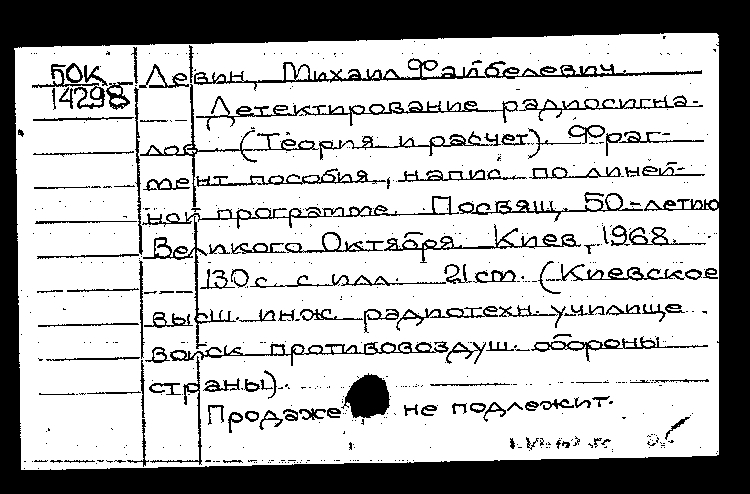 БОК Левин, Михаил Файбелевич.
14298 Детектирование радиосигна-
лов (Теория и расчет). Фраг-
мент пособия, напис. по линей-
ной программе. Посвящ. 50-летию
Великого Октября. Киев, 1968.
130 с. с илл. 21 cm. (Киевское
высш. инж. радиотехн. училище
войск противовоздуш. обороны
страны).
Продаже не подлежит.